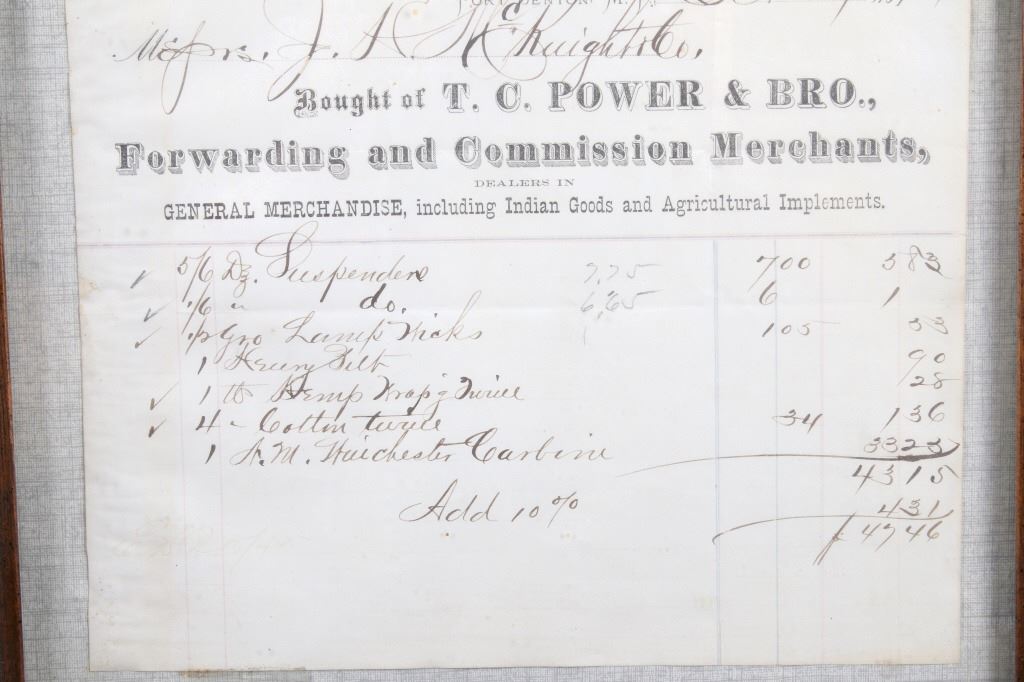 FORT BENTON, M. T.,
Messrs. J. H. McKnight & Co.
Bought of T. C. POWER & BRO.,
Forwarding and Commission Merchants,
DEALERS IN
GENERAL MERCHANDISE, including Indian Goods and Agricultural Implements.
5/6 Dz. Suspenders 7.75 700 583
1/6 " do. 6.65 6 1
1/2 Gro Lamp Wicks 105 53
1 Henry 90
1 lb Hemp Wrapg Twine 28
4 " Cotton twine 34 136
1 Winchester Carbine 3323
4315
Add 10% 431
$ 4746